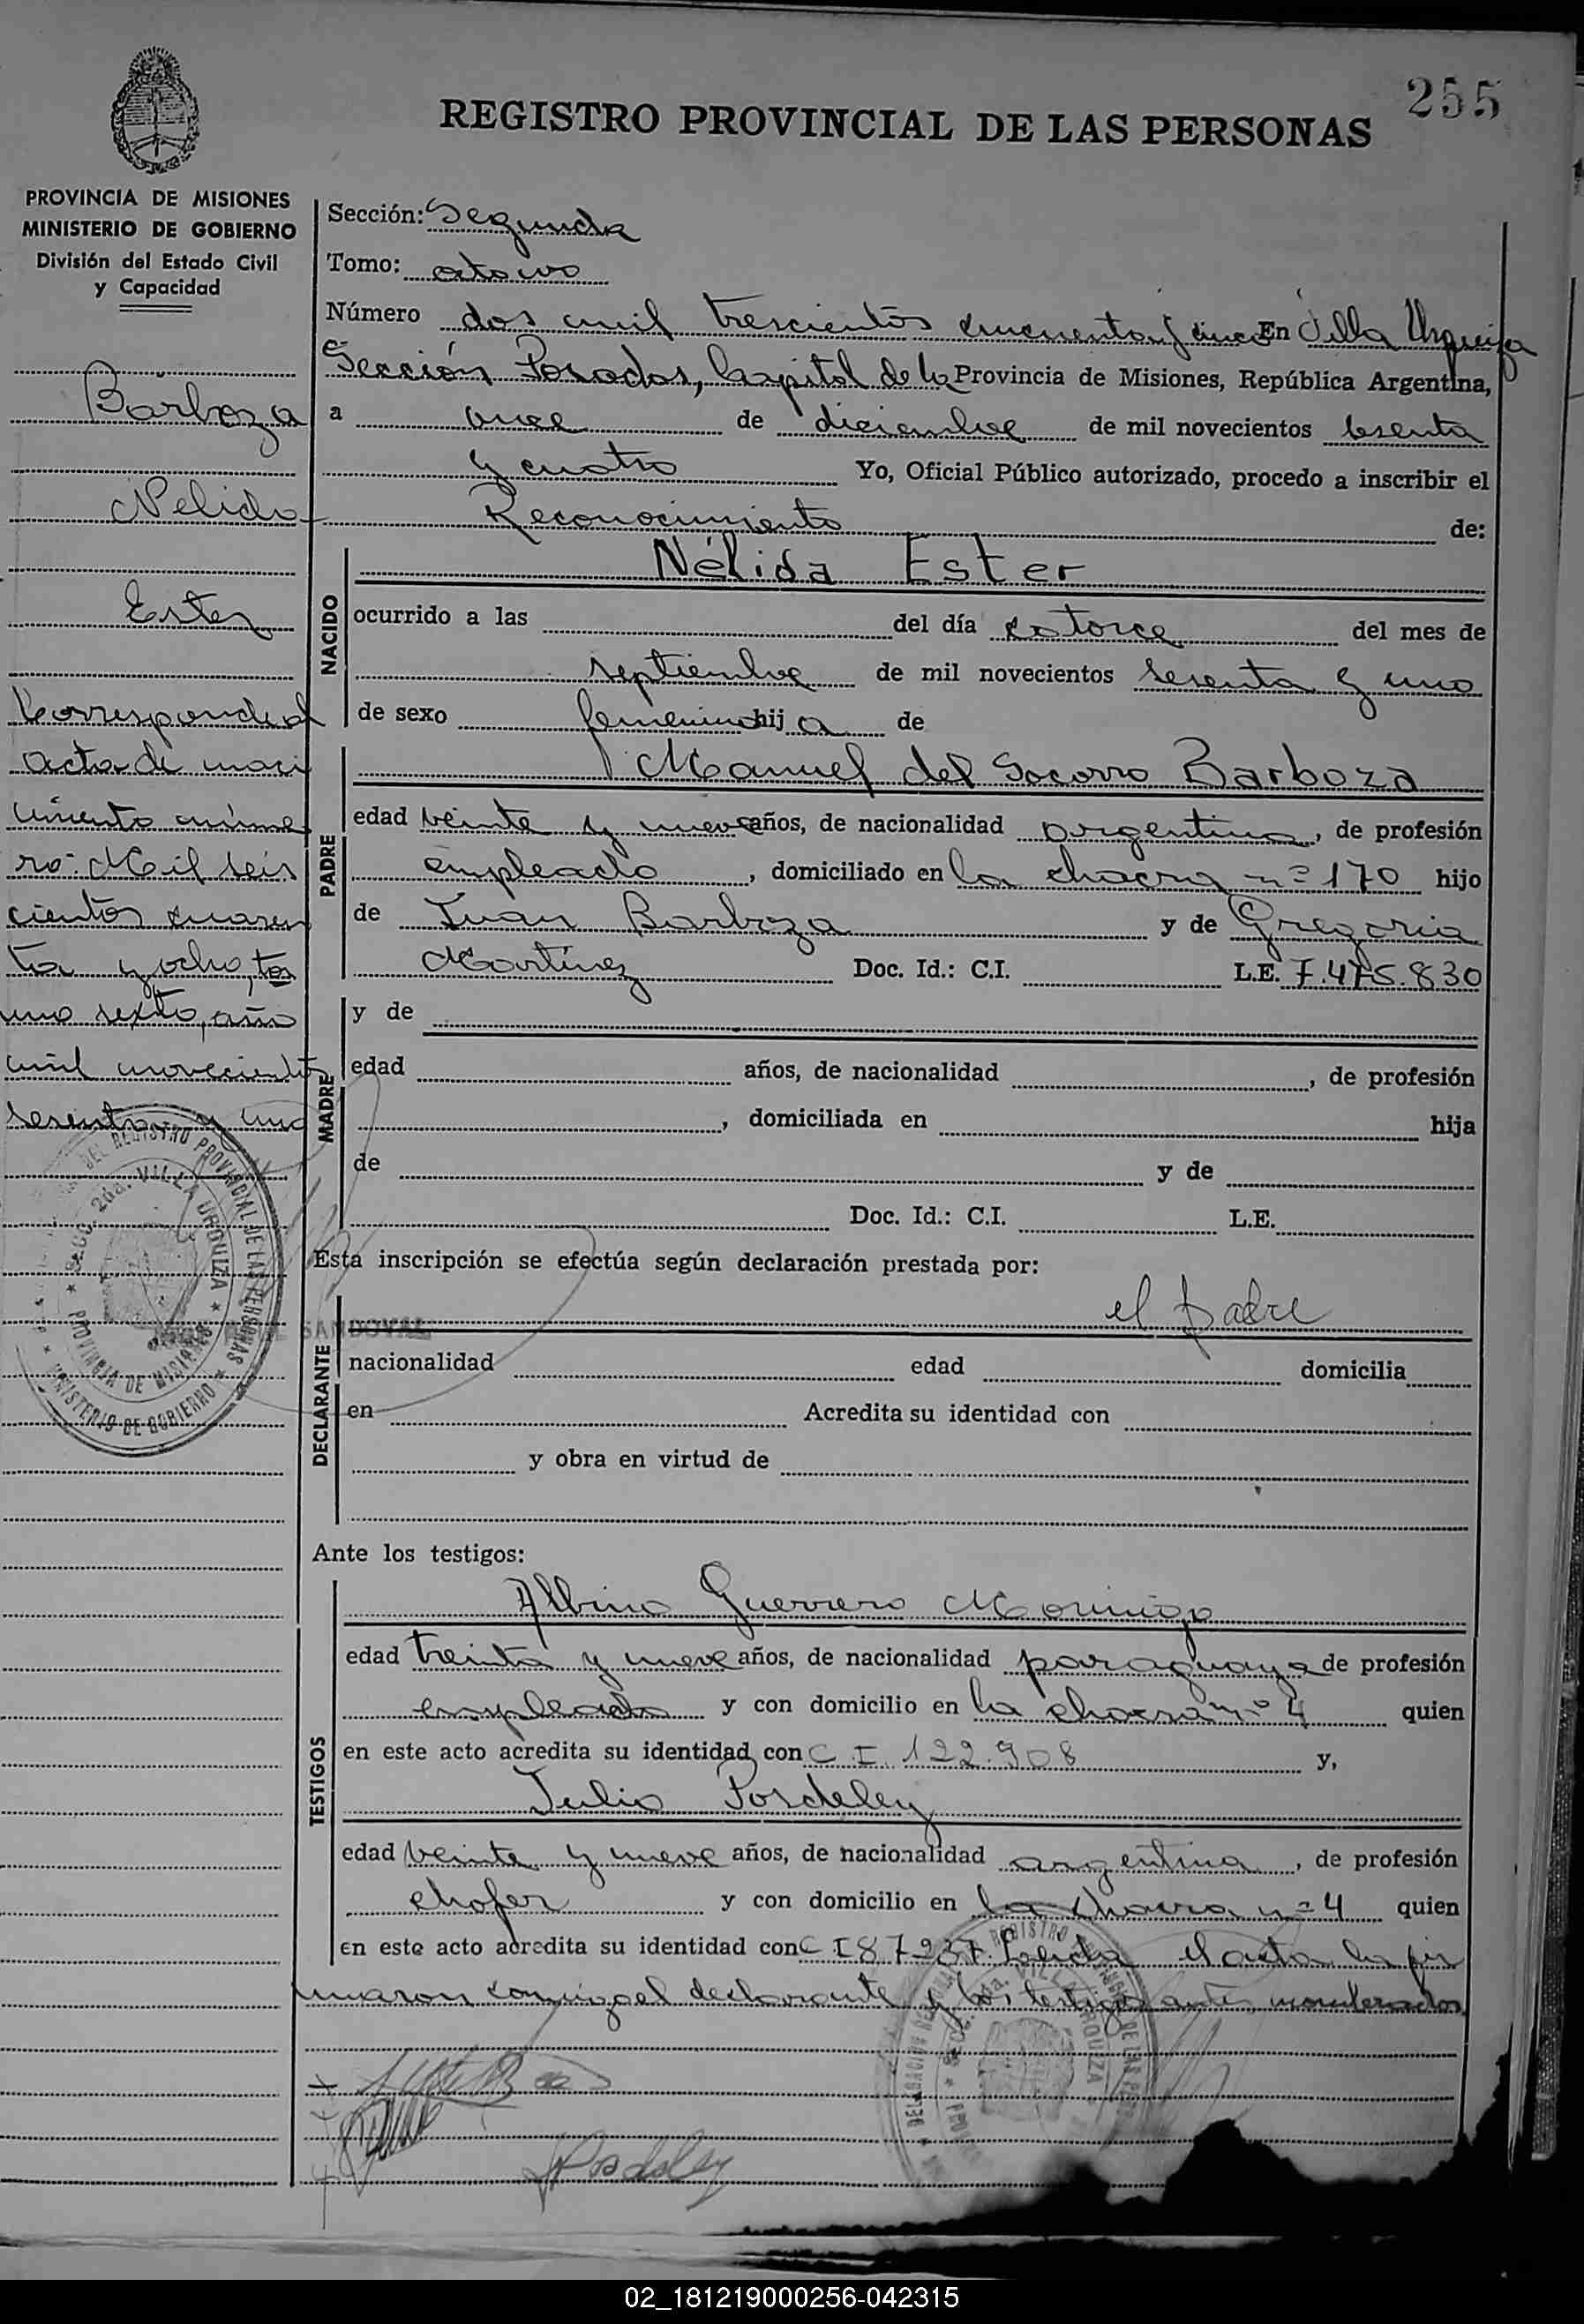 255
REGISTRO PROVINCIAL DE LAS PERSONAS
PROVINCIA DE MISIONES
MINISTERIO DE GOBIERNO
División del Estado Civil
y Capacidad
Barboza
Nelida
Ester
Corresponde al
acta de naci
miento núme
ro: Mil seis
cientos cuaren
ta y ocho, to
mo sexto, año
mil novecientos
sesenta y uno
Sección: Segunda
Tomo: octavo
Número dos mil trescientos cincuenta y cinco En Villa Urquiza
Sección Posadas, Capital de la Provincia de Misiones, República Argentina,
a once de diciembre de mil novecientos sesenta
y cuatro Yo, Oficial Público autorizado, procedo a inscribir el
Reconocimiento de:
NACIDO
Nélida Ester
ocurrido a las del día catorce del mes de
septiembre de mil novecientos sesenta y uno
de sexo femenino hij a de
PADRE
Manuel del Socorro Barboza
edad veinte y nueve años, de nacionalidad argentina, de profesión
empleado, domiciliado en la chacra nº 170 hijo
de Juan Barboza y de Gregoria
Martínez Doc. Id.: C.I. L.E. 7.475.830
MADRE
y de
edad años, de nacionalidad , de profesión
, domiciliada en hija
de y de
Doc. Id.: C.I. L.E.
Esta inscripción se efectúa según declaración prestada por:
DECLARANTE
el padre
nacionalidad edad domicilia
en Acredita su identidad con
y obra en virtud de
Ante los testigos:
TESTIGOS
Albino Guerrero Moringo
edad treinta y nueve años, de nacionalidad paraguaya de profesión
empleado y con domicilio en la chacra nº 4 quien
en este acto acredita su identidad con C I. 122.908 y,
Julio Posdeley
edad veinte y nueve años, de nacionalidad argentina, de profesión
chofer y con domicilio en la chacra nº 4 quien
en este acto acredita su identidad con C I 87237. Leida el acta la fir
maron conmigo el declarante y los testigos antes nombrados
Posdeley
DEL REGISTRO PROVINCIAL DE LAS PERSONAS
SECC. 2da. VILLA URQUIZA
PROVINCIA DE MISIONES
MINISTERIO DE GOBIERNO
SANDOVAL
02_181219000256-042315